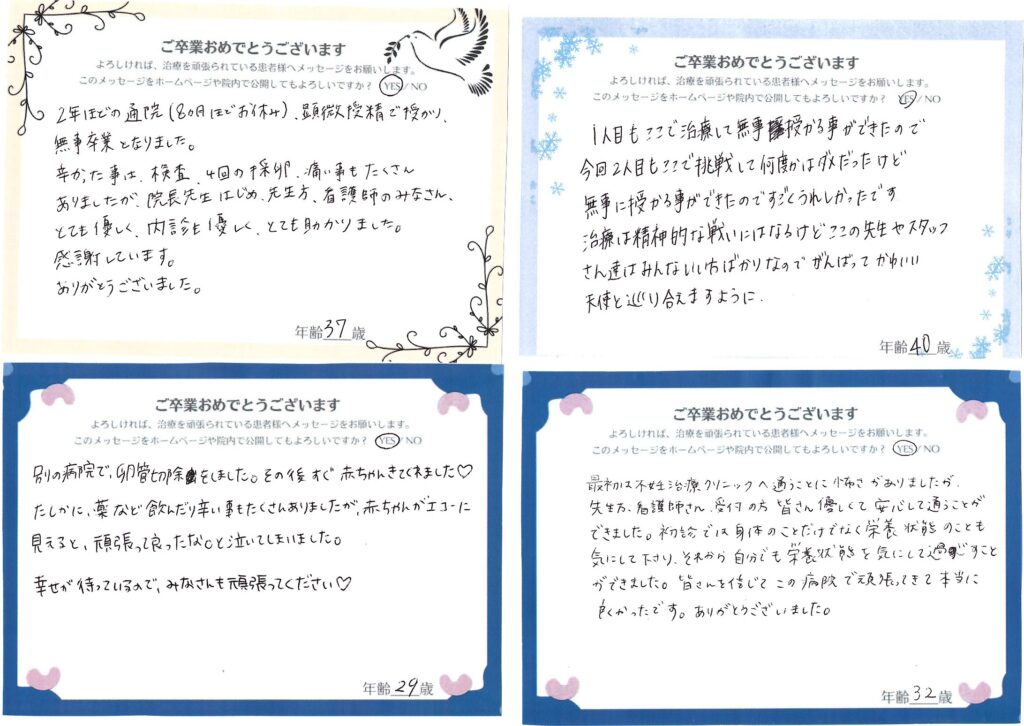 ご卒業おめでとうございます
よろしければ、治療を頑張られている患者様へメッセージをお願いします。
このメッセージをホームページや院内で公開してもよろしいですか? YES/NO
2年ほどの通院(8ヵ月ほどお休み)、顕微授精で授かり、
無事卒業となりました。
辛かった事は、検査、4回の採卵、痛い事もたくさん
ありましたが、院長先生はじめ、先生方、看護師のみなさん、
とても優しく、内診も優しく、とても助かりました。
感謝しています。
ありがとうございました。
年齢37歳
ご卒業おめでとうございます
よろしければ、治療を頑張られている患者様へメッセージをお願いします。
このメッセージをホームページや院内で公開してもよろしいですか? YES/NO
1人目もここで治療して無事授かる事ができたので
今回2人目もここで挑戦して何度かはダメだったけど
無事に授かる事ができたのですごくうれしかったです
治療は精神的な戦いにはなるけどここの先生やスタッフ
さん達はみんないい方ばかりなのでがんばってかわいい
天使と巡り合えますように.
年齢40歳
ご卒業おめでとうございます
よろしければ、治療を頑張られている患者様へメッセージをお願いします。
このメッセージをホームページや院内で公開してもよろしいですか? YES/NO
別の病院で、卵管切除をしました。その後すぐ赤ちゃんきてくれました♡
たしかに、薬など飲んだり辛い事もたくさんありましたが、赤ちゃんがエコーに
見えると、頑張って良かったな。と泣いてしまいました。
幸せが待っているので、みなさんも頑張ってください♡
年齢29歳
ご卒業おめでとうございます
よろしければ、治療を頑張られている患者様へメッセージをお願いします。
このメッセージをホームページや院内で公開してもよろしいですか? YES/NO
最初は不妊治療クリニックへ通うことに怖さがありましたが、
先生方、看護師さん、受付の方 皆さん優しくて安心して通うことが
できました。初診では身体のことだけでなく栄養状態のことも
気にして下さり、それから自分でも栄養状態を気にして過ごすこと
ができました。皆さんを信じてこの病院で頑張ってきて本当に
良かったです。ありがとうございました。
年齢32歳